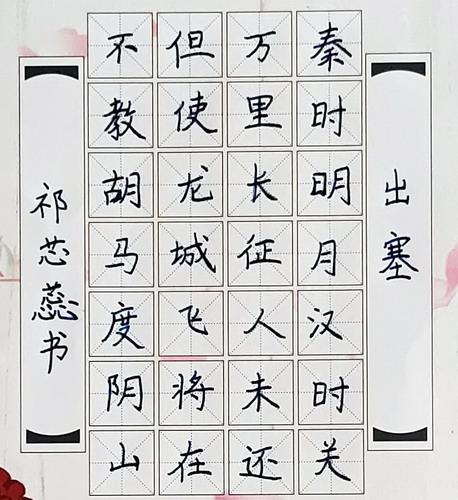 出塞
秦时明月汉时关
万里长征人未还
但使龙城飞将在
不教胡马度阴山
祁芯蕊书